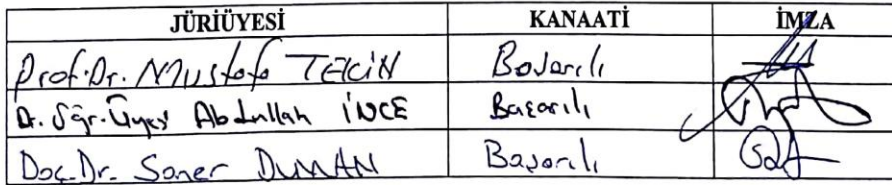 JÜRİÜYESİ KANAATİ İMZA
Prof. Dr. Mustafa TEKİN Başarılı
Dr. Öğr. Üyesi Abdullah İNCE Başarılı
Doç. Dr. Soner DUMAN Başarılı